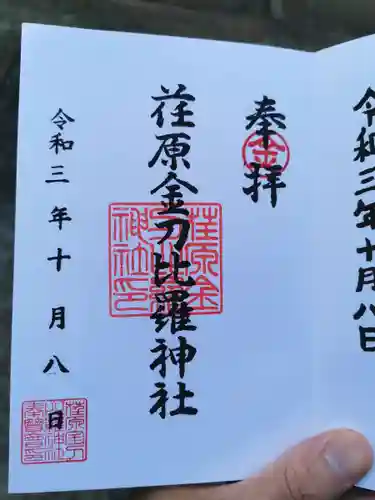 令和三年十月八日
奉拝
金
荏原金刀比羅神社
荏原金刀比羅神社印
令和三年十月八日